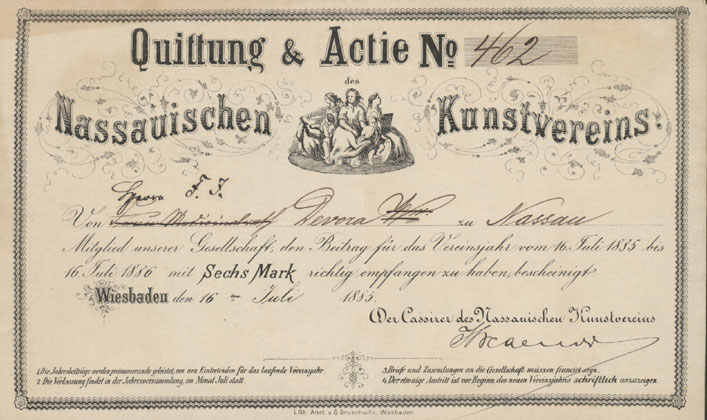 Quittung & Actie No 462
des
Nassauischen Kunstvereins.
Herrn F. J.
Von Frau Medicinalrath Devora Ww. zu Nassau
Mitglied unserer Gesellschaft, den Beitrag für das Vereinsjahr vom 16. Juli 1885 bis
16. Juli 1886 mit Sechs Mark richtig empfangen zu haben, bescheinigt
Wiesbaden den 16 ten Juli 1885.
Der Cassirer des Nassauischen Kunstvereins
1. Die Jahresbeiträge werden pränumerando geleistet, von neu Eintretenden für das laufende Vereinsjahr.
2. Die Verloosung findet in der Jahresversammlung, im Monat Juli statt.
3. Briefe und Zusendungen an die Gesellschaft müssen francirt seyn.
4. Der etwaige Austritt ist vor Beginn des neuen Vereinsjahres schriftlich anzuzeigen.
Lith. Anst. v. G. Brodschwitz, Wiesbaden